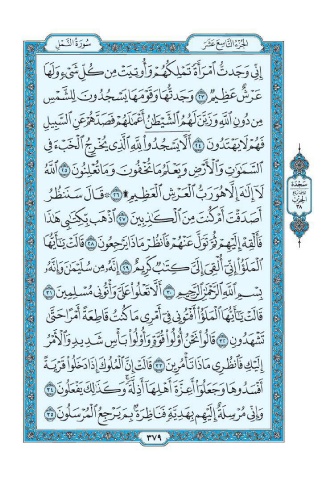 الجزء التاسع عشر
سورة النمل
إِنِّي وَجَدتُّ ٱمْرَأَةً تَمْلِكُهُمْ وَأُوتِيَتْ مِن كُلِّ شَيْءٍ وَلَهَا
عَرْشٌ عَظِيمٌ ٢٣ وَجَدتُّهَا وَقَوْمَهَا يَسْجُدُونَ لِلشَّمْسِ
مِن دُونِ ٱللَّهِ وَزَيَّنَ لَهُمُ ٱلشَّيْطَٰنُ أَعْمَٰلَهُمْ فَصَدَّهُمْ عَنِ ٱلسَّبِيلِ
فَهُمْ لَا يَهْتَدُونَ ٢٤ أَلَّا يَسْجُدُوا۟ لِلَّهِ ٱلَّذِي يُخْرِجُ ٱلْخَبْءَ فِي
ٱلسَّمَٰوَٰتِ وَٱلْأَرْضِ وَيَعْلَمُ مَا تُخْفُونَ وَمَا تُعْلِنُونَ ٢٥ ٱللَّهُ
لَآ إِلَٰهَ إِلَّا هُوَ رَبُّ ٱلْعَرْشِ ٱلْعَظِيمِ ۩ ٢٦ ۞ قَالَ سَنَنظُرُ
أَصَدَقْتَ أَمْ كُنتَ مِنَ ٱلْكَٰذِبِينَ ٢٧ ٱذْهَب بِّكِتَٰبِي هَٰذَا
فَأَلْقِهْ إِلَيْهِمْ ثُمَّ تَوَلَّ عَنْهُمْ فَٱنظُرْ مَاذَا يَرْجِعُونَ ٢٨ قَالَتْ يَٰٓأَيُّهَا
ٱلْمَلَؤُا۟ إِنِّيٓ أُلْقِيَ إِلَيَّ كِتَٰبٌ كَرِيمٌ ٢٩ إِنَّهُۥ مِن سُلَيْمَٰنَ وَإِنَّهُۥ
بِسْمِ ٱللَّهِ ٱلرَّحْمَٰنِ ٱلرَّحِيمِ ٣٠ أَلَّا تَعْلُوا۟ عَلَيَّ وَأْتُونِي مُسْلِمِينَ ٣١
قَالَتْ يَٰٓأَيُّهَا ٱلْمَلَؤُا۟ أَفْتُونِي فِيٓ أَمْرِي مَا كُنتُ قَاطِعَةً أَمْرًا حَتَّىٰ
تَشْهَدُونِ ٣٢ قَالُوا۟ نَحْنُ أُو۟لُوا۟ قُوَّةٍ وَأُو۟لُوا۟ بَأْسٍ شَدِيدٍ وَٱلْأَمْرُ
إِلَيْكِ فَٱنظُرِي مَاذَا تَأْمُرِينَ ٣٣ قَالَتْ إِنَّ ٱلْمُلُوكَ إِذَا دَخَلُوا۟ قَرْيَةً
أَفْسَدُوهَا وَجَعَلُوٓا۟ أَعِزَّةَ أَهْلِهَآ أَذِلَّةً وَكَذَٰلِكَ يَفْعَلُونَ ٣٤
وَإِنِّي مُرْسِلَةٌ إِلَيْهِم بِهَدِيَّةٍ فَنَاظِرَةٌۢ بِمَ يَرْجِعُ ٱلْمُرْسَلُونَ ٣٥
سجدة
الحزب
٣٨
٣٧٩